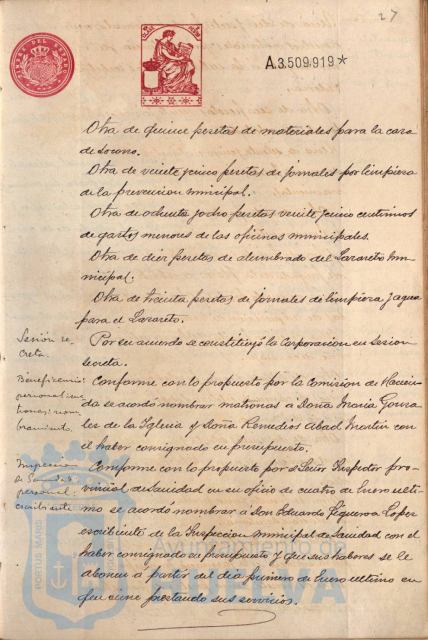 27
TIMBRE DEL ESTADO
A.3.509.919*
Otra de quince pesetas de materiales para la casa
de socorro.
Otra de veinte y cinco pesetas de jornales por limpieza
de la prevencion municipal.
Otra de ochenta y ocho pesetas veinte y cinco centimos
de gastos menores de las oficinas municipales.
Otra de diez pesetas de alumbrado del Lazareto mu-
nicipal.
Otra de treinta pesetas de jornales de limpieza y agua
para el Lazareto.
Sesión se-
creta.
Por su acuerdo se constituyó la Corporacion en sesion
secreta.
Beneficencia
personal
nom-
bramiento.
Conforme con lo propuesto por la Comision de Hacien-
da se acordó nombrar matronas a Doña Maria Gonza
lez de la Iglesia y Doña Remedios Abad Martin con
el haber consignado en presupuesto.
Inspeccion
de Sanidad
personal.
escribiente
Conforme con lo propuesto por el Señor Inspector pro-
vincial de Sanidad en su oficio de cuatro de Enero ulti-
mo se acordo nombrar á Don Eduardo Figueroa Lopez
escribiente de la Inspeccion municipal de Sanidad con el
haber consignado en presupuesto y que sus haberes se le
abonen á partir del dia primero de Enero ultimo en
que viene prestando sus servicios.
PORTUS MARIS